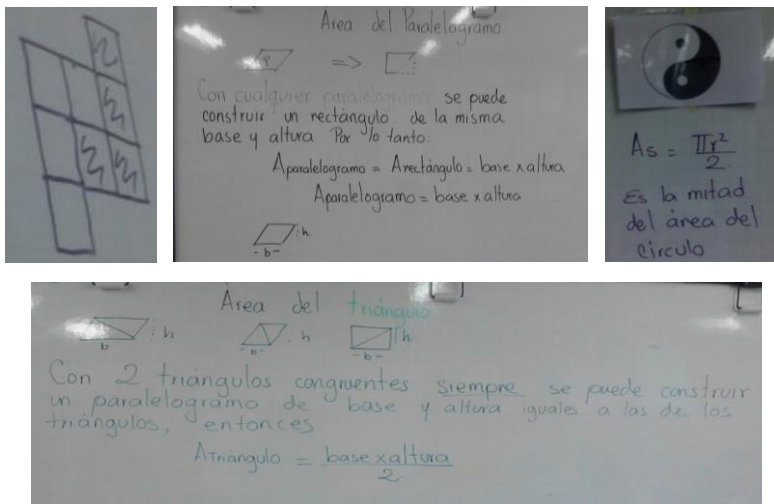 Area del Paralelogramo
P
=>
Con cualquier paralelogramo se puede
construir un rectángulo de la misma
base y altura Por lo tanto:
Aparalelogramo = Arectángulo = base x altura
Aparalelogramo = base x altura
h
b
As = πr²/2
Es la mitad
del área del
círculo
Area del triángulo
h h h
b b b
Con 2 triángulos congruentes siempre se puede construir
un paralelogramo de base y altura iguales a las de los
triángulos, entonces
Atriángulo = base x altura
2